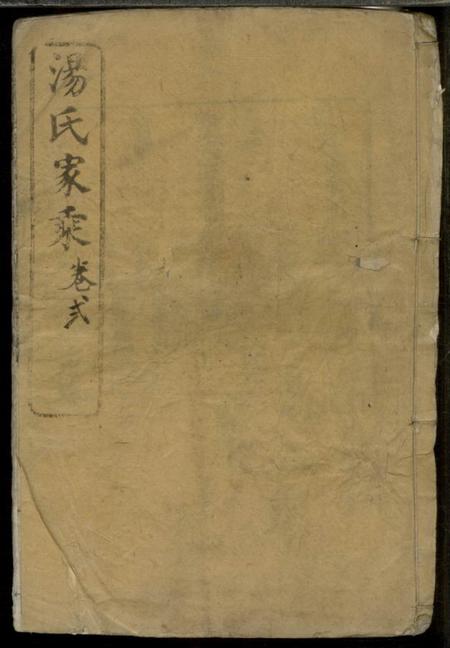 湯氏家乘卷弍